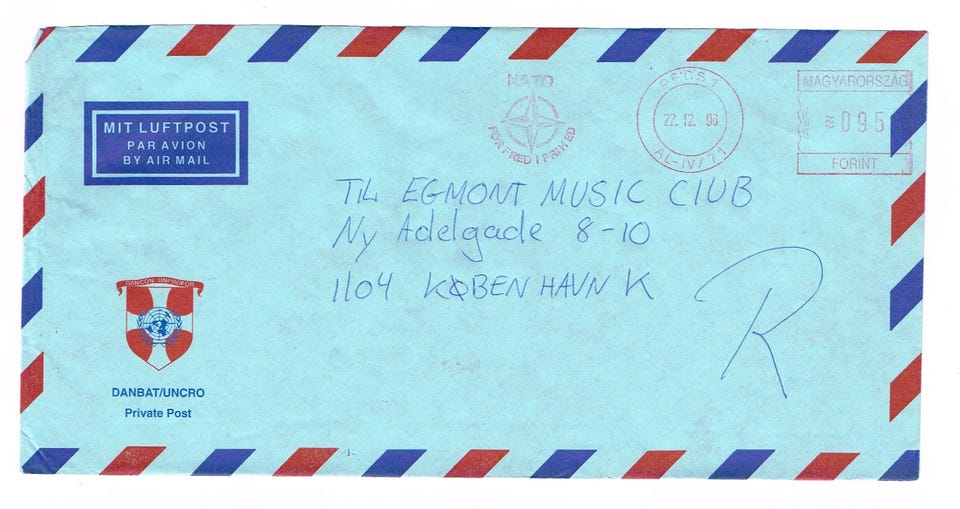 NATO
FOR FRED I FRIHED
PÉCS 1
22. 12. 96
AL-IV/71
MAGYARORSZÁG
095
FORINT
MIT LUFTPOST
PAR AVION
BY AIR MAIL
TIL EGMONT MUSIC CLUB
Ny Adelgade 8-10
1104 KØBENHAVN K
R
DANCON UNPROFOR
DANBAT/UNCRO
Private Post